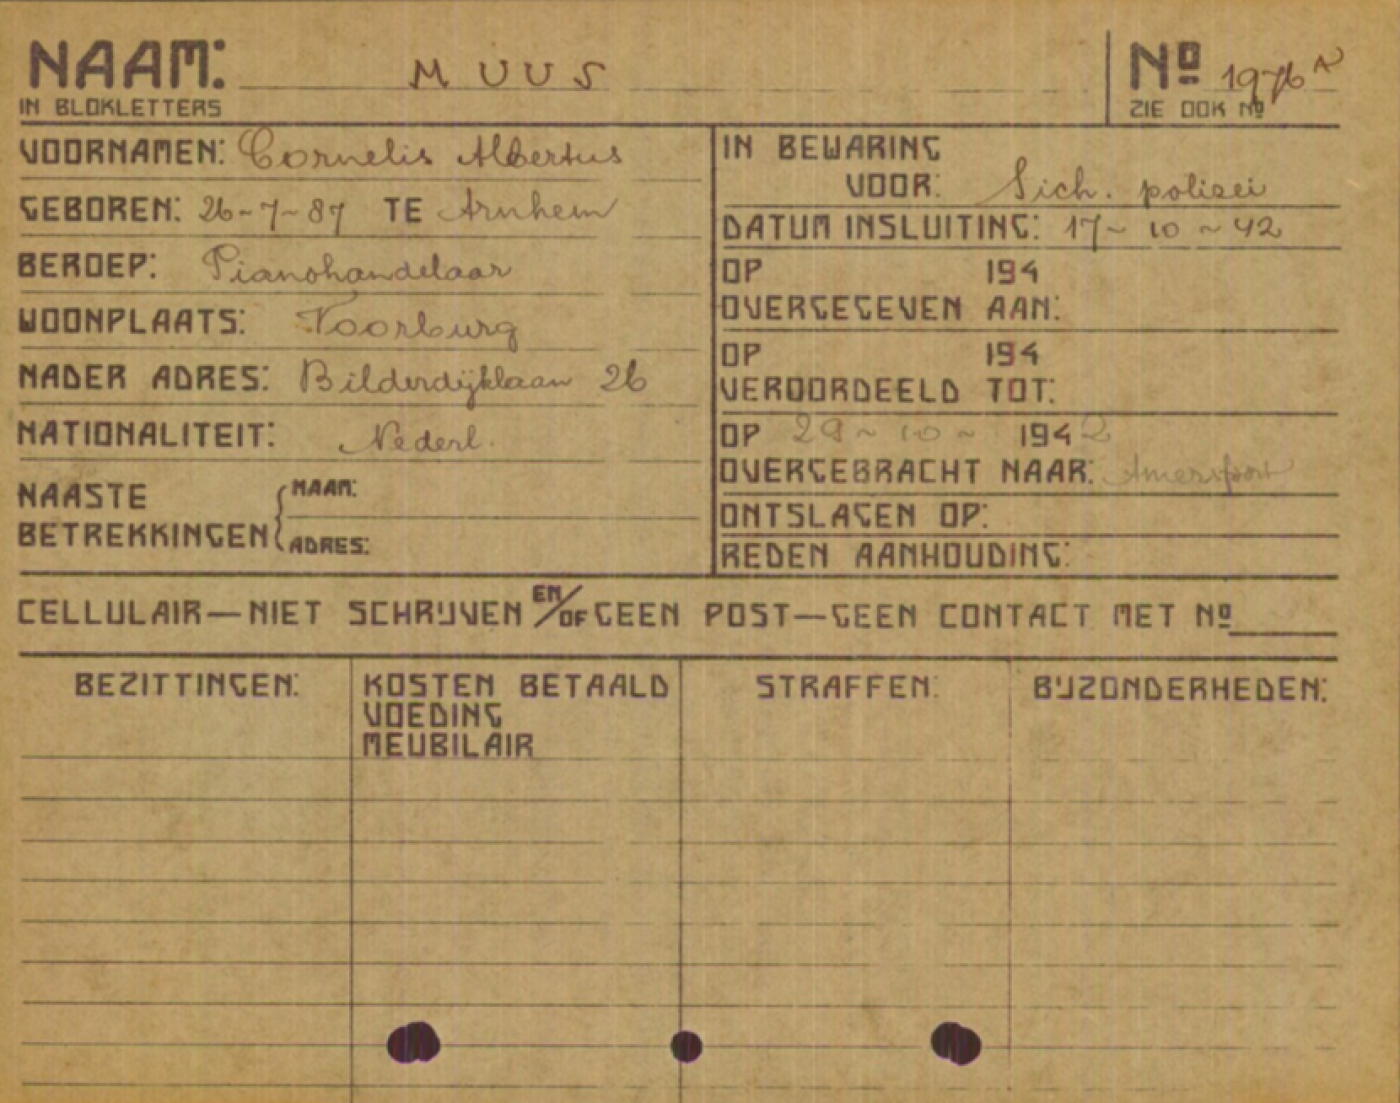 NAAM: MUUS
IN BLOKLETTERS
Nº 1976 A
ZIE OOK Nº
VOORNAMEN: Cornelis Albertus
GEBOREN: 26-7-87 TE Arnhem
BEROEP: Pianohandelaar
WOONPLAATS: Voorburg
NADER ADRES: Bilderdijklaan 26
NATIONALITEIT: Nederl.
NAASTE BETREKKINGEN
NAAM:
ADRES:
IN BEWARING
VOOR: Sich. polizei
DATUM INSLUITING: 17-10-42
OP 194
OVERGEGEVEN AAN:
OP 194
VEROORDEELD TOT:
OP 29-10-1942
OVERGEBRACHT NAAR: Amersfoort
ONTSLAGEN OP:
REDEN AANHOUDING:
CELLULAIR—NIET SCHRIJVEN EN/OF GEEN POST—GEEN CONTACT MET Nº
BEZITTINGEN:
KOSTEN BETAALD
VOEDING
MEUBILAIR
STRAFFEN:
BIJZONDERHEDEN: